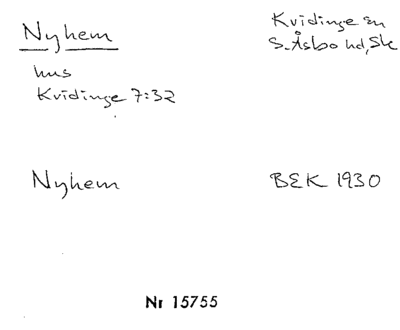 Nyhem
Kvidinge sn
S. Åsbo hd, Sk
hus
Kvidinge 7:32
Nyhem
BEK 1930
Nr 15755